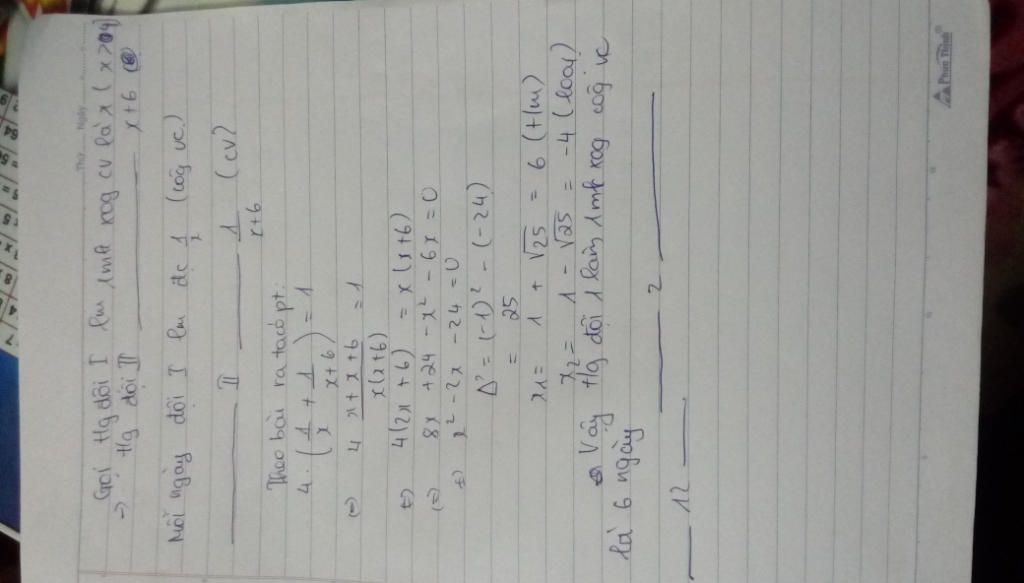 Thứ ........ Ngày ........
Gọi tg đội I lm 1mk xog cv là x (x > 4)
→ tg đội II ______ x+6 (
Mỗi ngày đội I lm đc 1/x (côg vc)
______ II ______ 1/x+6 (cv)
Theo bài ra ta có pt:
4. (1/x + 1/x+6) = 1
(=) 4 x+x+6/x(x+6) = 1
(=) 4(2x+6) = x(x+6)
(=) 8x +24 -x² -6x = 0
(=) x² -2x -24 = 0
Δ' = (-1)² - (-24)
= 25
x1 = 1 + √25 = 6 (t/m)
x2 = 1 - √25 = -4 (loại)
Vậy tg đội 1 làm 1mk xog côg vc
là 6 ngày
______ 2 ______
___ 12 ___
Phan Thành